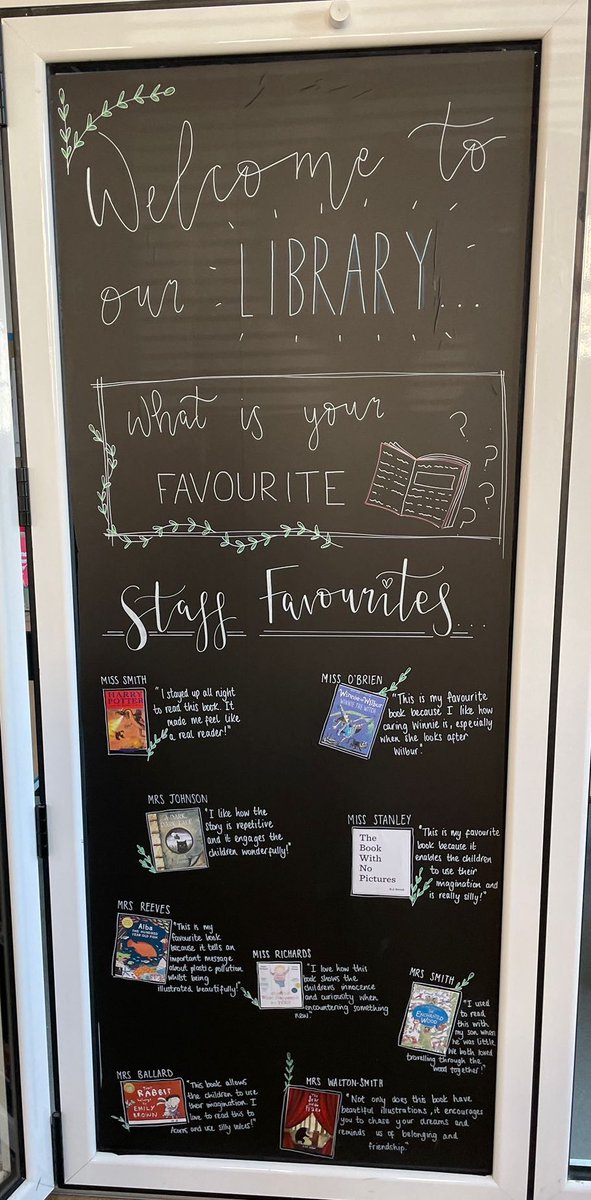 Welcome to
our LIBRARY...
What is your
FAVOURITE
? ? ? ?
Staff Favourites...
MISS SMITH
HARRY
POTTER
"I stayed up all night
to read this book. It
made me feel like
a real reader!"
MISS O'BRIEN
Winnie and Wilbur
WINNIE THE WITCH
"This is my favourite
book because I like how
caring Winnie is, especially
when she looks after
Wilbur."
MRS JOHNSON
A DARK,
DARK TALE
"I like how the
story is repetitive
and it engages the
children wonderfully!"
MISS STANLEY
The
Book
With
No
Pictures
"This is my favourite
book because it
enables the children
to use their
imagination and
is really silly!"
MRS REEVES
Alba
THE HUNDRED
YEAR OLD FISH
"This is my
favourite book
because it tells an
important message
about plastic pollution
whilst being
illustrated beautifully!"
MISS RICHARDS
"I love how this
book shows the
childrens innocence
and curiosity when
encountering something
new."
MRS SMITH
THE
ENCHANTED
WOOD
"I used
to read
this with
my son when
he was little.
We both loved
travelling through the
wood together!"
MRS BALLARD
That
RABBIT
belongs to
EMILY
BROWN
"This book allows
the children to use
their imagination. I
love to read this to
Acorns and use silly voices!"
MRS WALTON-SMITH
THE
BEAR
AND THE
PIANO
"Not only does this book have
beautiful illustrations, it encourages
you to chase your dreams and
reminds us of belonging and
friendship."